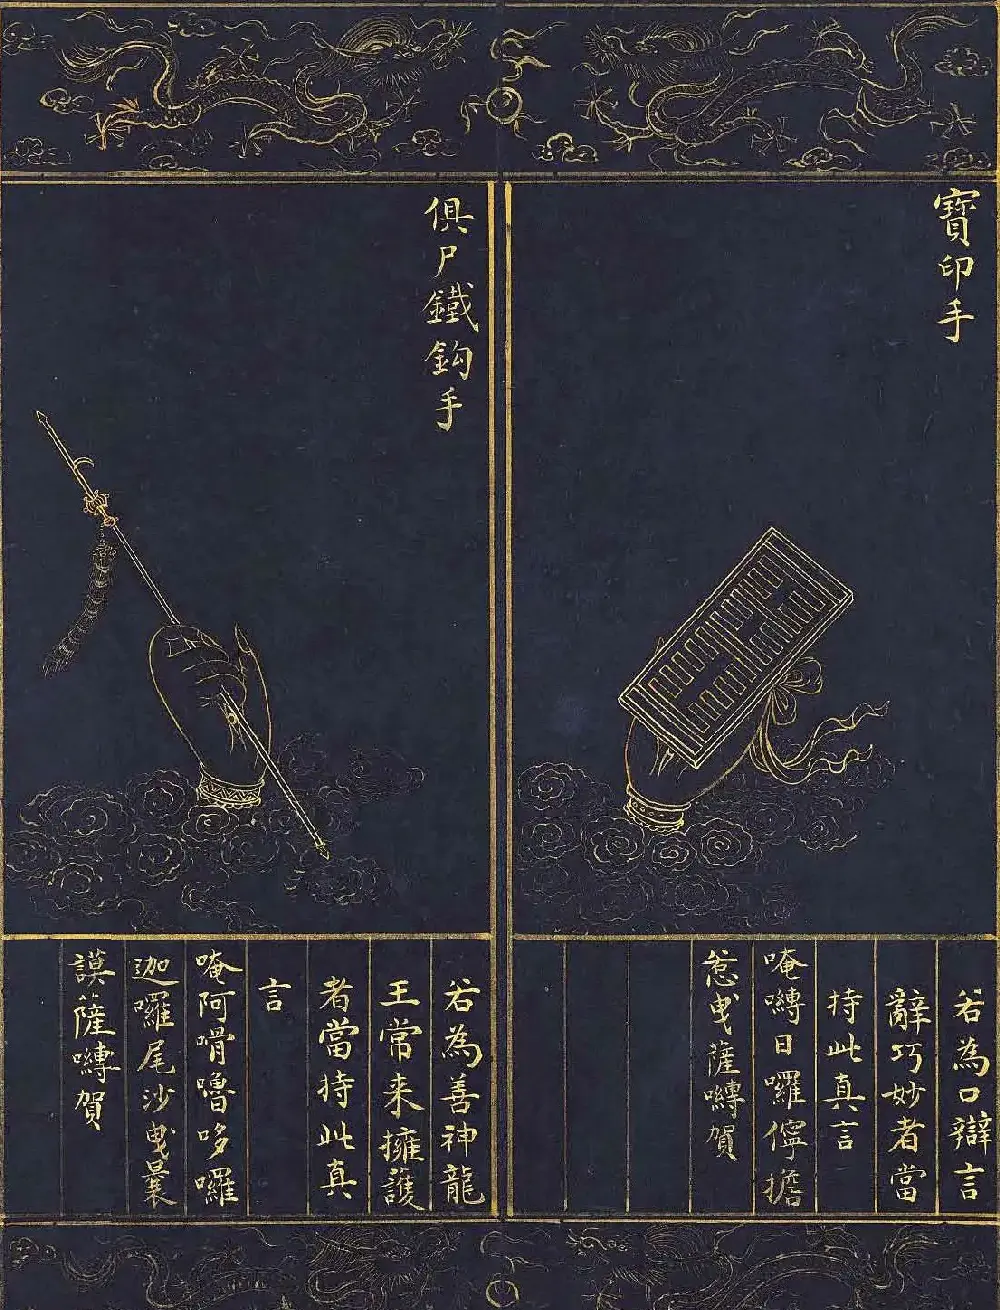 寶印手
若為口辯言
辭巧妙者當
持此真言
唵嚩日囉儜擔
惹曳薩嚩賀
俱尸鐵鈎手
若為善神龍
王常来擁護
者當持此真
言
唵阿嗗嚕哆囉
迦囉尾沙曳曩
謨薩嚩賀